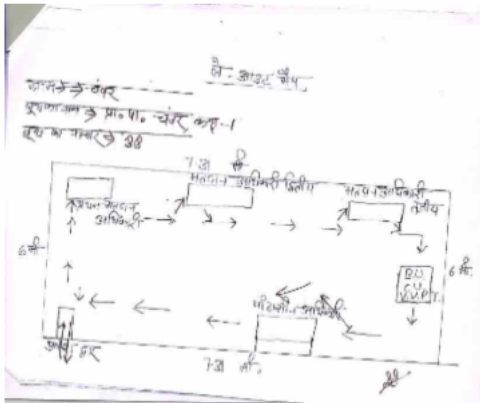 ले-आउट मैप
ग्राम → चंवर
बूथ का नाम → प्रा० पा० चंवर कक्ष-1
बूथ का नम्बर → 38
7.31 मी
मतदान अधिकारी द्वितीय
मतदान अधिकारी तृतीय
प्रथम मतदान अधिकारी
6 मी.
6 मी.
B.U
C.U
V.V.P.T.
पीठासीन अधिकारी
द्वार
7.31 मी.